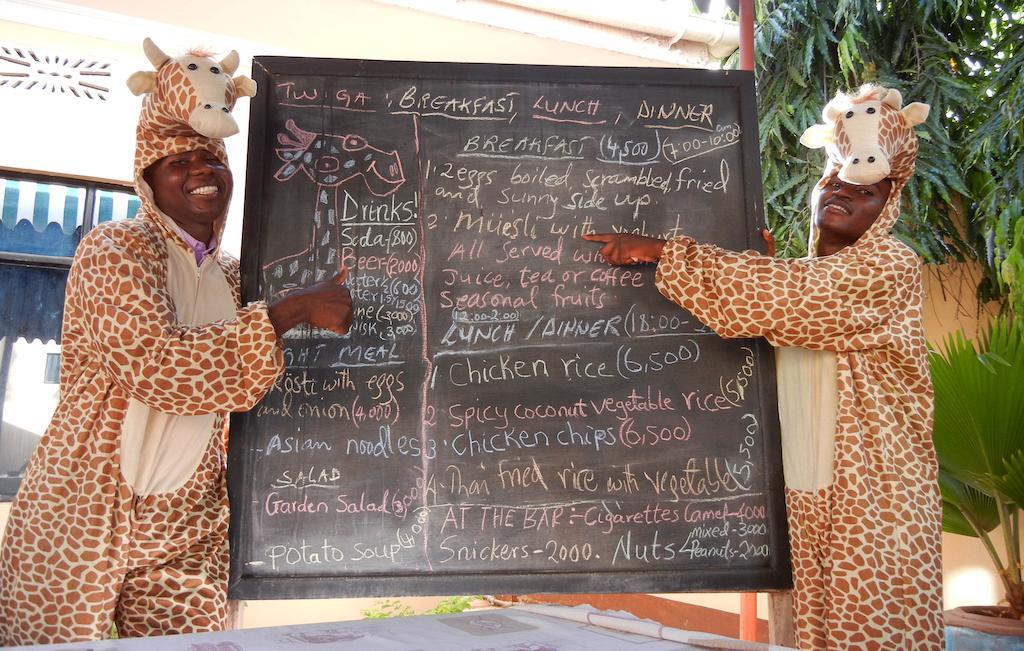 TWIGA : BREAKFAST, LUNCH, DINNER
Drinks!
Soda-(800)
Beer-(2000)
(600)
1.5/1500
(3000)
3,000
MEAL
Rösti with eggs
and onion (4,000)
- Asian noodles
SALAD
Garden Salad
- Potato Soup (4000)
BREAKFAST (4,500) 7:00-10:00
1: 2 eggs boiled, scrambled, fried
and Sunny side up.
2: Müesli with
All Served
Juice, tea or coffee
Seasonal fruits
12:00-2:00
LUNCH / DINNER (18:00-
1 Chicken rice (6,500)
2. Spicy coconut vegetable rice (5,500)
3: Chicken chips (6,500)
4. Thai fried rice with vegetable 5,500)
AT THE BAR :- Cigarettes Camel-4000
Snickers-2000. Nuts mixed-3000
Peanuts-2000